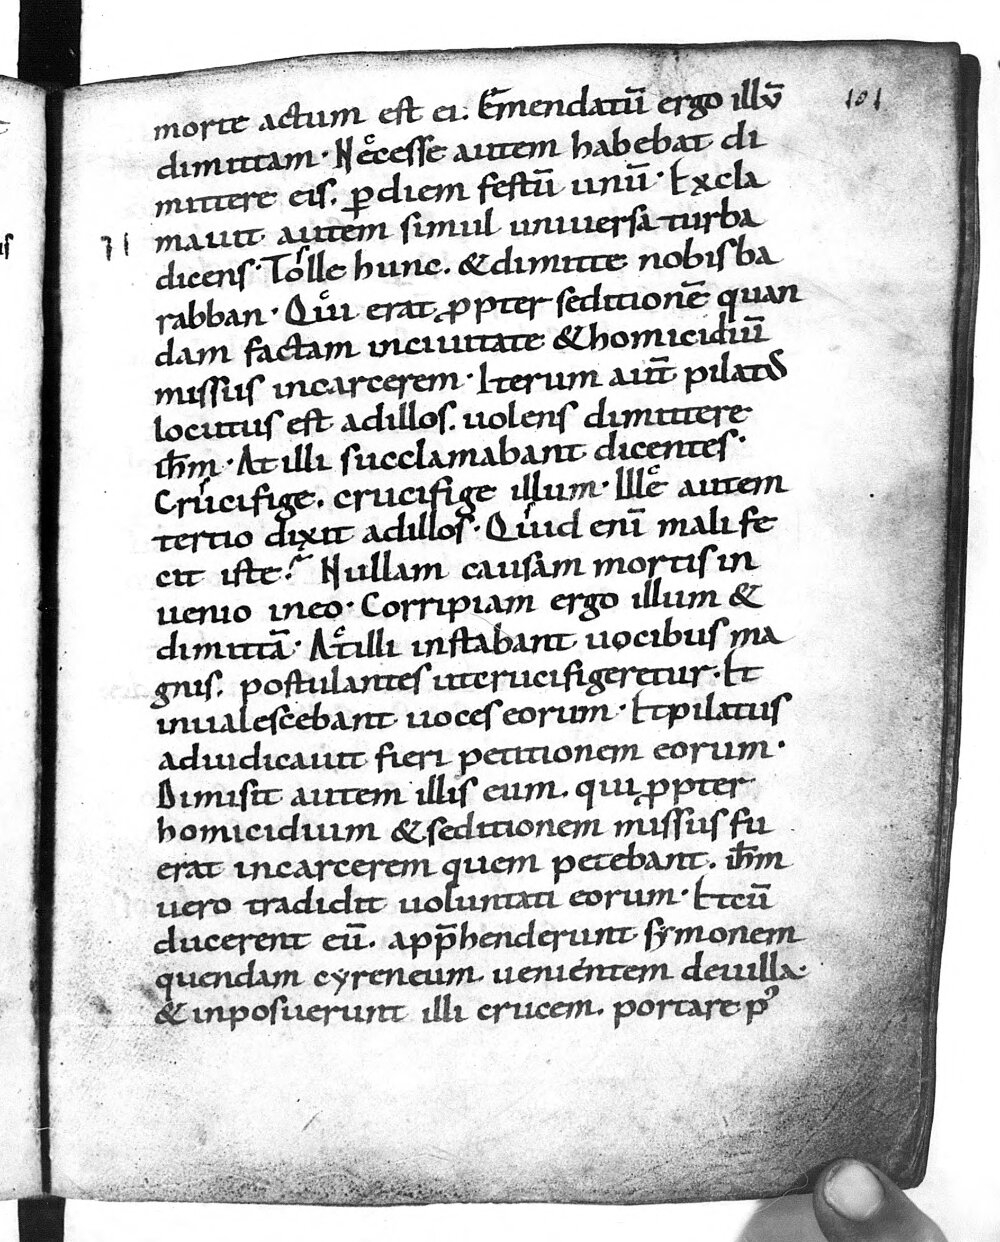 morte actum est ei. Emendatū ergo illū 101
dimittam· Necesse autem habebat di
mittere eis. ꝑ diem festū unū· Excla
71 mauit autem simul uniuersa turba
dicens· Tolle hunc. & dimitte nobis ba
rabban· Qui erat ꝓpter seditionē quan
dam factam in ciuitate & homicidiū
missus in carcerem· Iterum aut̄ pilatus
locutus est ad illos. uolens dimittere
ih̄m· At illi succlamabant dicentes·
Crucifige. crucifige illum· Ille autem
tertio dixit ad illos· Quid enī mali fe
cit iste? Nullam causam mortis in
uenio in eo· Corripiam ergo illum &
dimittā· At illi instabant uocibus ma
gnis. postulantes ut crucifigeretur· Et
inualescebant uoces eorum· Et pilatus
adiudicauit fieri petitionem eorum·
Dimisit autem illis eum. qui ꝓpter
homicidium & seditionem missus fu
erat in carcerem quem petebant. ih̄m
uero tradidit uoluntati eorum· Et cū
ducerent eū. app̄henderunt symonem
quendam cyreneum uenientem de uilla·
& inposuerunt illi crucem. portare p᾿